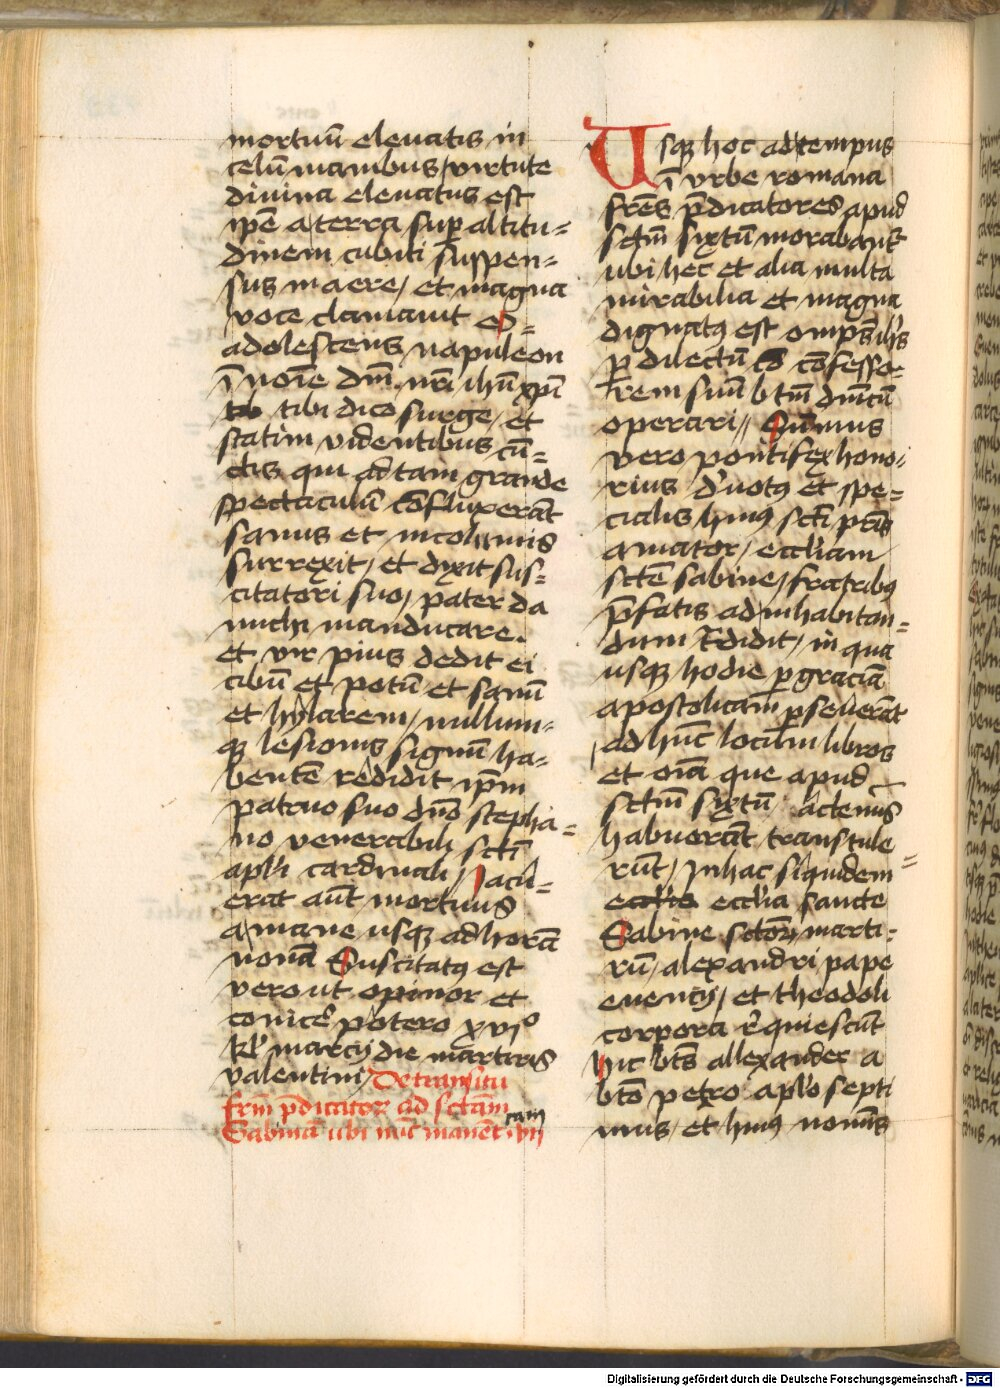 mortuū eleuatis in
celū manibus / virtute
diuina eleuatus est
ip̄e a terra sup̱ altitu=
dinem cubiti suspen=
sus in aere / et magna
voce clamauit O
adolescens napuleon
ī noīe dn̄i nr̄i ihū xp̄i
tibi dico surge / et
statim videntibus cū=
ctis qui ad tam grande
spectaculū cōfluxerāt
sanus et incolumis
surrexit / et dixit sus=
citatori suo / pater da
michi manducare.
et vir pius dedit ei
cibū et potū et sanū
et hylarem / nullum=
qꝫ lesionis signū ha=
bentē redidit ip̄m
patruo suo dn̄o stepha=
no venerabili sct̄i
apl̓i cardinali / Jacu=
erat aūt mortuus
a mane usqꝫ ad horā
nonā Suscitatꝰ est
vero ut opinor et
conice᷑ potero xvjº
kl̓ marcij die martiris
valentini / De transitu
frm̄ p̄dicatoꝝ ad sctām
Sabinā ubi nūc manēt
Usqꝫ hoc ad tempus
ī vrbe romana
fr̄es p̄dicatores apud
sctm̄ sixtū morabant᷑
ubi hec et alia multa
mirabilia et magna
dignatꝰ est omp̄s ih̄s
p̱ dilectū cōfesso=
rem suū btm̄ dn̄icū
operari // Sūmus
vero pontifex hono=
rius deuotꝰ et spe=
cialis huiꝰ sct̄i pr̄is
amator / eccl̓iam
scte̅ sabine / fratribꝰ
p̄fatis ad inhabitan=
dum t᷑didit / in qua
usqꝫ hodie p̱ graciā
apostolicam p̱seuerāt
ad hūc locum libros
et oīa que apud
sctm̄ sixtū actenus
habuerāt transtule=
rūt / In hac siquidem
eccl̓ia sancte
Sabine sctoꝝ marti=
rū / alexandri pape
euencij / et theodoli
corpora re᷑quiescūt
hic bt̄s allexander a
bt̄o petro apl̓o septi
mus / et huiꝰ nominis